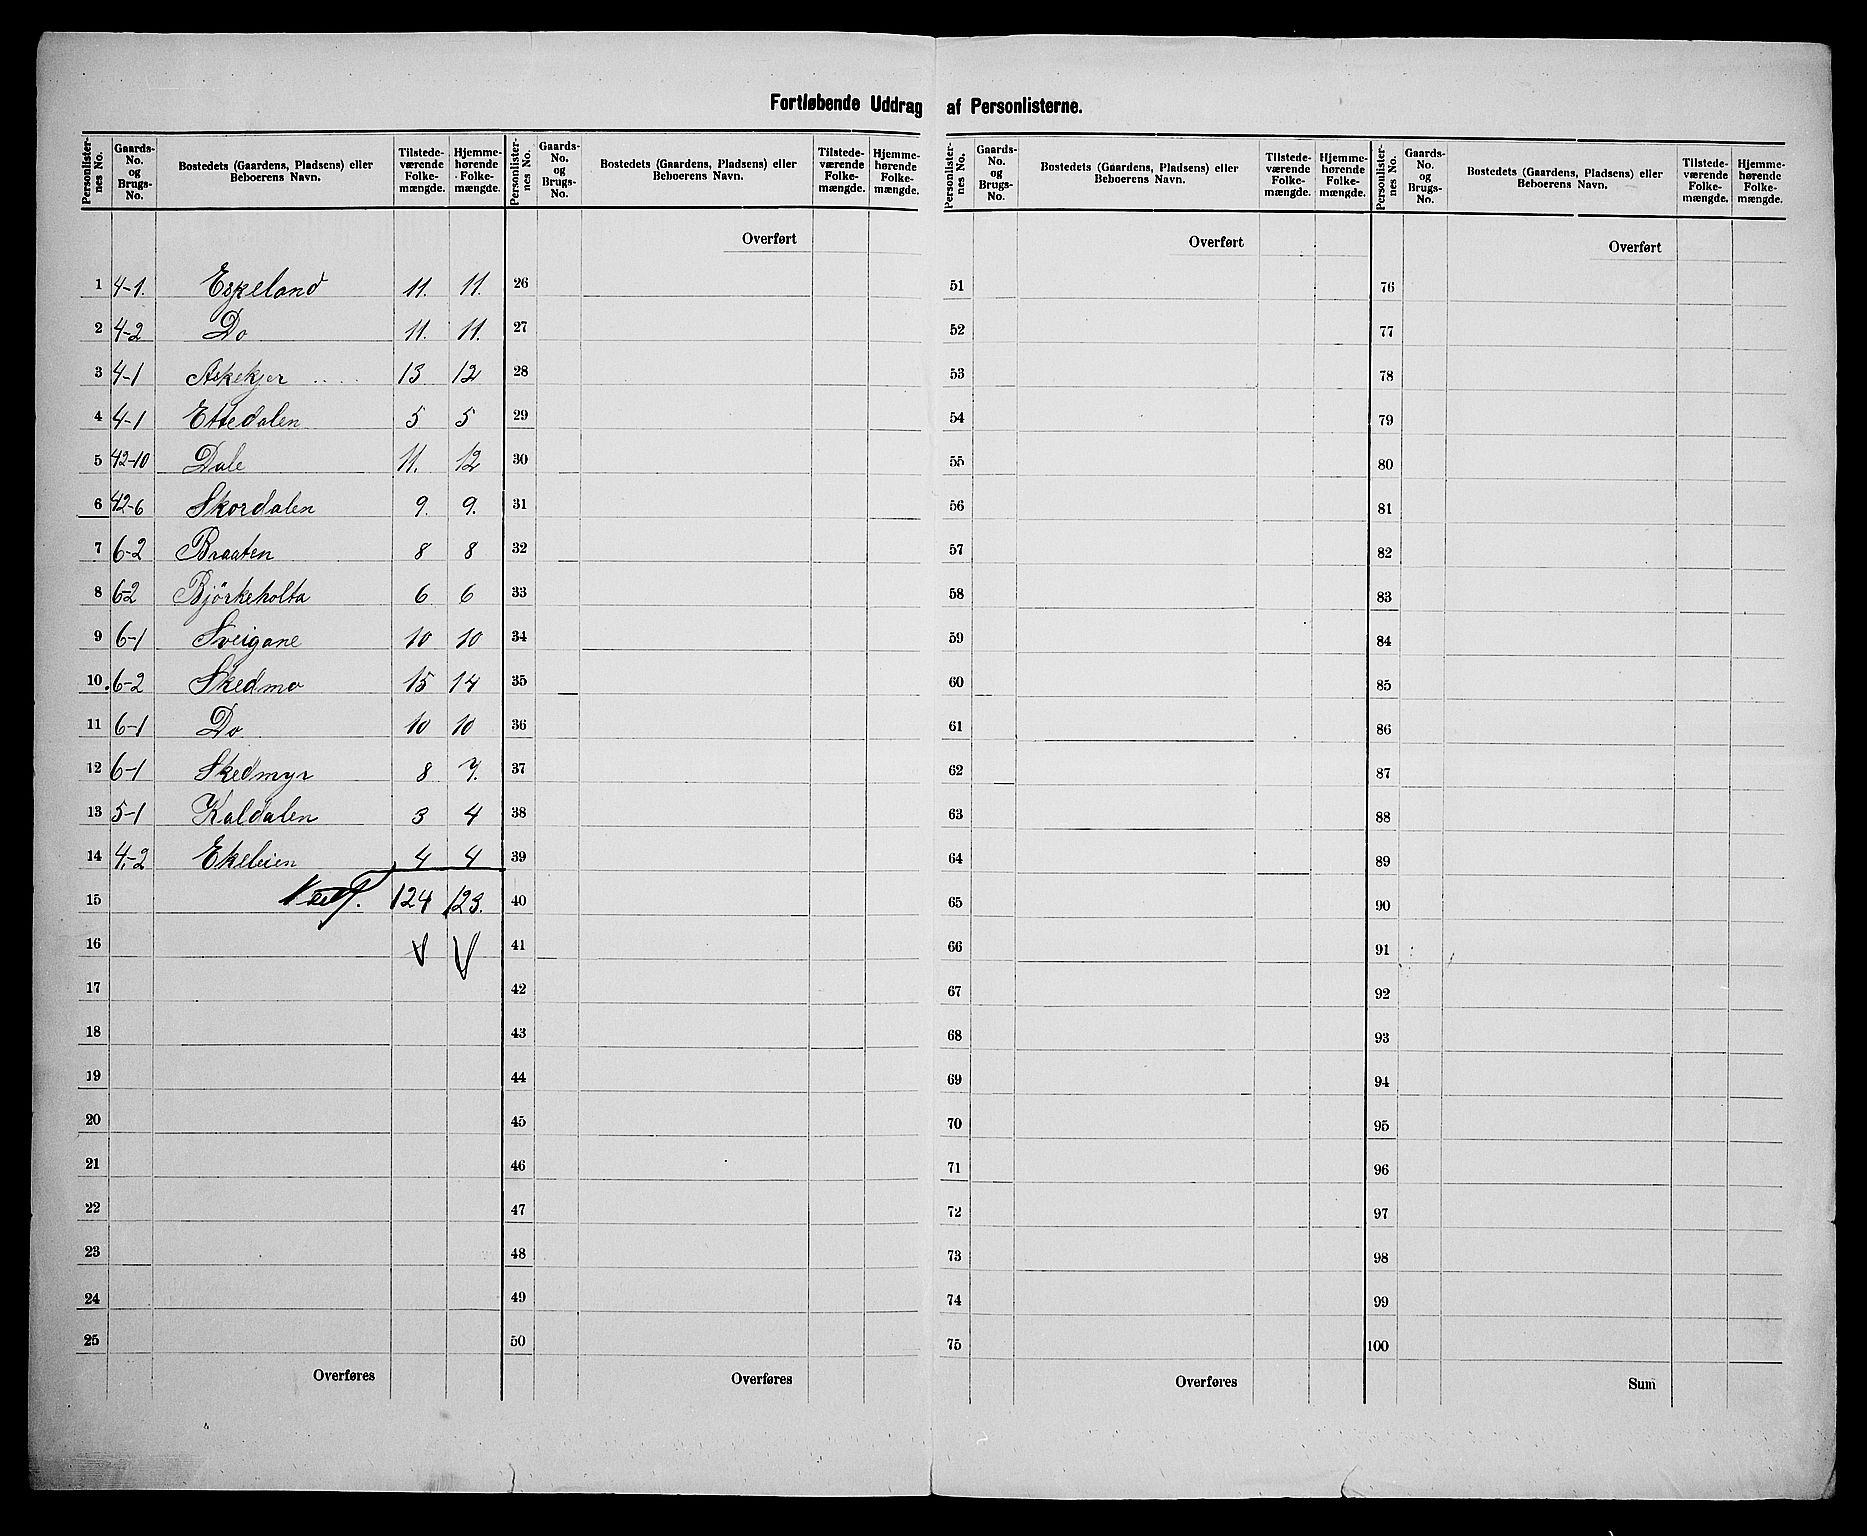 Fortløbende Uddrag af Personlisterne.
Personlister-nes No. Gaards-No. og Brugs-No. Bostedets (Gaardens, Pladsens) eller Beboerens Navn. Tilstede-værende Folke-mængde. Hjemme-hørende Folke-mængde. Personlister-nes No. Gaards-No. og Brugs-No. Bostedets (Gaardens, Pladsens) eller Beboerens Navn. Tilstede-værende Folke-mængde. Hjemme-hørende Folke-mængde. Personlister-nes No. Gaards-No. og Brugs-No. Bostedets (Gaardens, Pladsens) eller Beboerens Navn. Tilstede-værende Folke-mængde. Hjemme-hørende Folke-mængde. Personlister-nes No. Gaards-No. og Brugs-No. Bostedets (Gaardens, Pladsens) eller Beboerens Navn. Tilstede-værende Folke-mængde. Hjemme-hørende Folke-mængde.
Overført Overført Overført
1 4-1. Eskeland 11. 11. 26 51 76
2 4-2 Do 11. 11. 27 52 77
3 4-1 Askekjer .... 13 12 28 53 78
4 4-1 Ettedalen 5 5 29 54 79
5 42-10 Dale 11. 12 30 55 80
6 42-6 Skordalen 9. 9. 31 56 81
7 6-2 Braaten 8 8 32 57 82
8 6-2 Bjørkeholta 6 6 33 58 83
9 6-1 Sveigane 10 10 34 59 84
10. 6-2 Skedmo 15 14 35 60 85
11 6-1 Do 10 10 36 61 86
12 6-1 Skedmyr 8 7. 37 62 87
13 5-1 Kaldalen 3 4 38 63 88
14 4-2 Ekeleien 4 4 39 64 89
15 124 123. 40 65 90
16 41 66 91
17 42 67 92
18 43 68 93
19 44 69 94
20 45 70 95
21 46 71 96
22 47 72 97
23 48 73 98
24 49 74 99
25 50 75 100
Overføres Overføres Overføres Sum